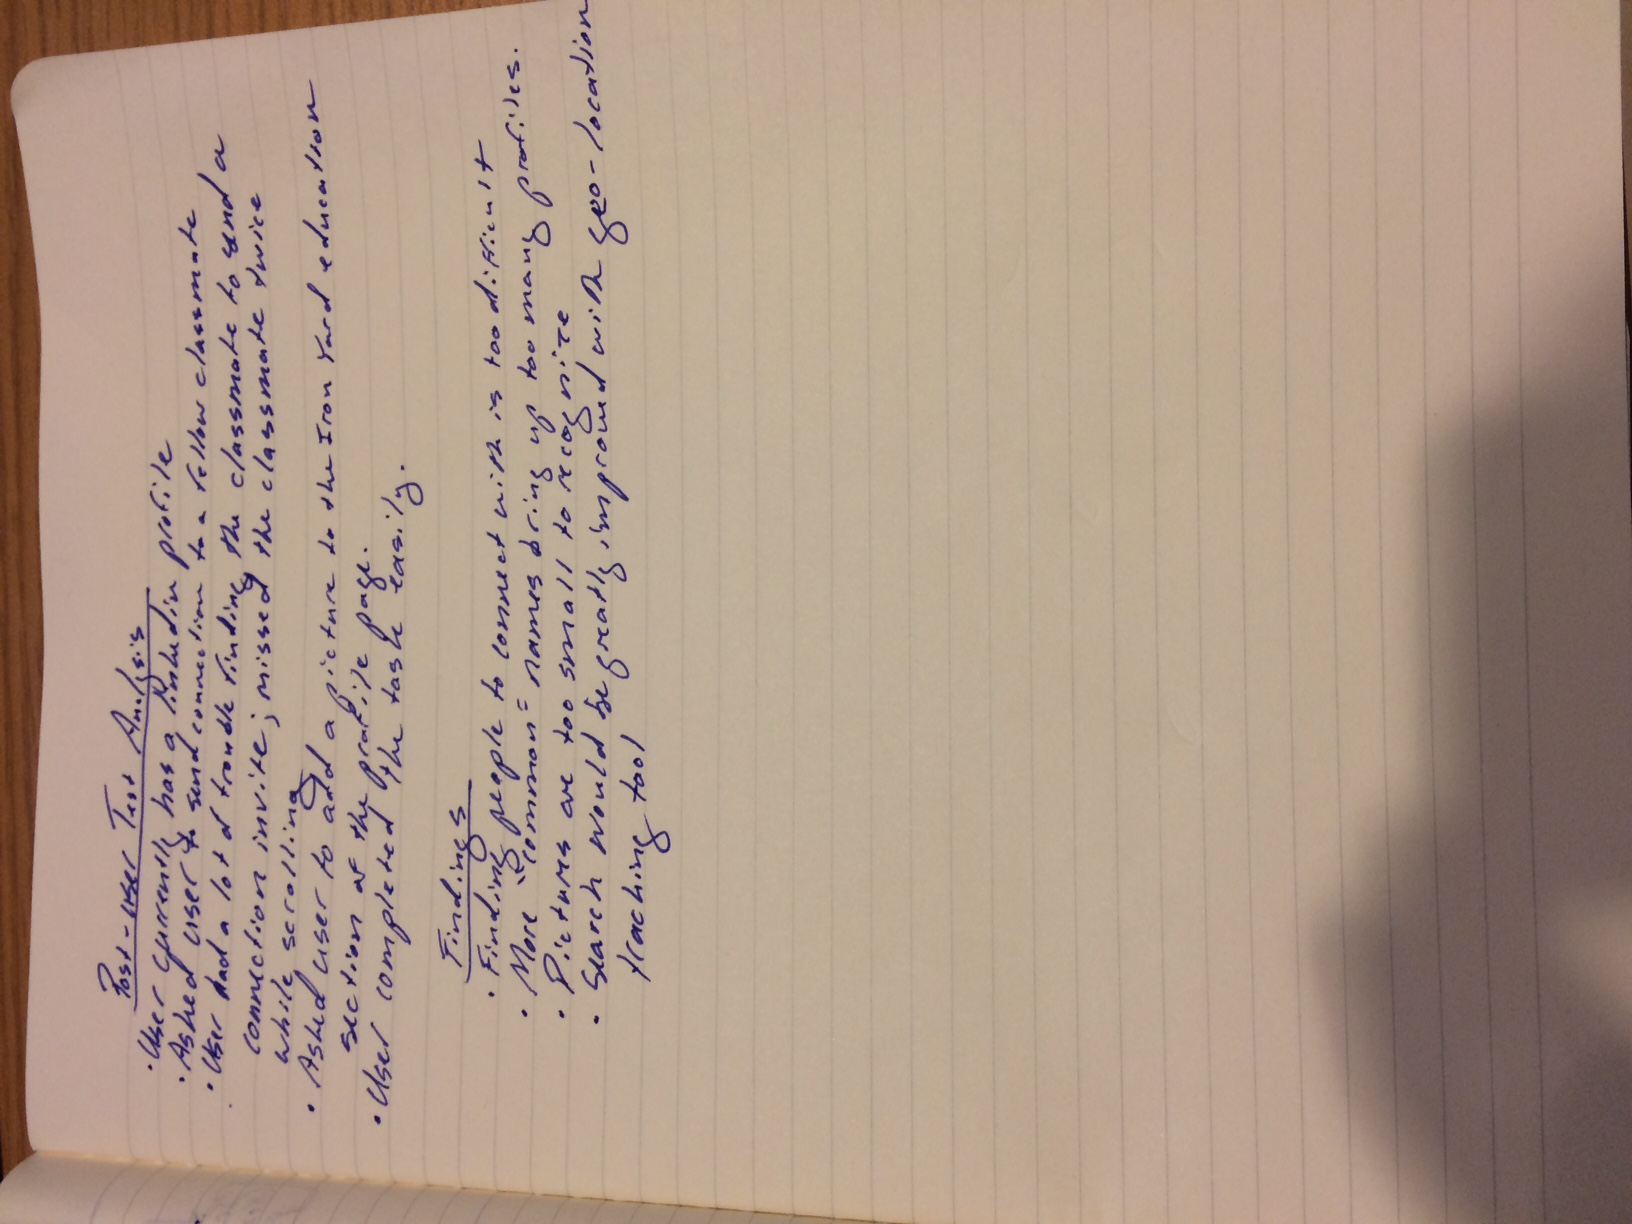 Post-user Test Analysis
• User currently has a linkedin profile
• Asked user to send connection to a fellow classmate
• User had a lot of trouble finding the classmate to send a
connection invite; missed the classmate twice
while scrolling
• Asked user to add a picture to the Iron Yard education
section of the profile page.
• User completed the task easily.
Findings
• Finding people to connect with is too difficult
• More "common" names bring up too many profiles.
• Pictures are too small to recognize
• Search would be greatly improved with geo-location
tracking tool